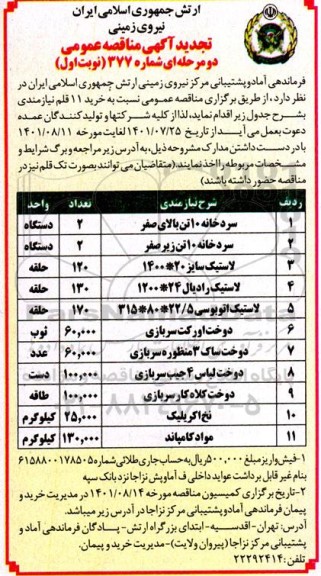 ارتش جمهوری اسلامی ایران
نیروی زمینی
تجدید آگهی مناقصه عمومی
دو مرحله ای شماره ۳۷۷ (نوبت اول)
فرماندهی آماد و پشتیبانی مرکز نیروی زمینی ارتش جمهوری اسلامی ایران در
نظر دارد، از طریق برگزاری مناقصه عمومی نسبت به خرید ۱۱ قلم نیازمندی
بشرح جدول زیر اقدام نماید، لذا از کلیه شرکتها و تولیدکنندگان عمده
دعوت بعمل می آید از تاریخ ۱۴۰۱/۰۷/۲۵ لغایت مورخه ۱۴۰۱/۰۸/۱۱
با در دست داشتن مدارک مشروحه ذیل، به آدرس زیر مراجعه و برگ شرایط و
مشخصات مربوطه را اخذ نمایند. (متقاضیان می توانند بصورت تک قلم نیز در
مناقصه حضور داشته باشند)
ردیف شرح نیازمندی تعداد واحد
۱ سردخانه ۱۰ تن بالای صفر ۲ دستگاه
۲ سردخانه ۱۰ تن زیر صفر ۲ دستگاه
۳ لاستیک سایز ۲۰*۱۴۰۰ ۱۲۰ حلقه
۴ لاستیک رادیال ۲۴*۱۲۰۰ ۱۳۰ حلقه
۵ لاستیک اتوبوسی ۲۲/۵*۸۰*۳۱۵ ۱۷۰ حلقه
۶ دوخت اورکت سربازی ۶۰,۰۰۰ ثوب
۷ دوخت ساک ۳ منظوره سربازی ۶۰,۰۰۰ عدد
۸ دوخت لباس ۴ جیب سربازی ۱۰۰,۰۰۰ دست
۹ دوخت کلاه کار سربازی ۱۰۰,۰۰۰ طاقه
۱۰ نخ اکریلیک ۲۵,۰۰۰ کیلوگرم
۱۱ مواد کامپاند ۱۳۰,۰۰۰ کیلوگرم
۱-فیش واریز مبلغ ۵۰۰,۰۰۰ ریال به حساب جاری طلائی شماره ۶۱۵۸۸۰۰۱۷۸۵۰۵
بنام غیر قابل برداشت عواید داخلی ف آماد و پش نزاجا نزد بانک سپه
۲-تاریخ برگزاری کمیسیون مناقصه مورخه ۱۴۰۱/۰۸/۱۴ در مدیریت خرید و
پیمان فرماندهی آماد و پشتیبانی مرکز نزاجا در آدرس زیر میباشد.
آدرس: تهران-اقدسیه-ابتدای بزرگراه ارتش-پادگان فرماندهی آماد و
پشتیبانی مرکز نزاجا (پیروان ولایت)-مدیریت خرید و پیمان.
تلفن: ۲۲۲۹۲۴۱۴